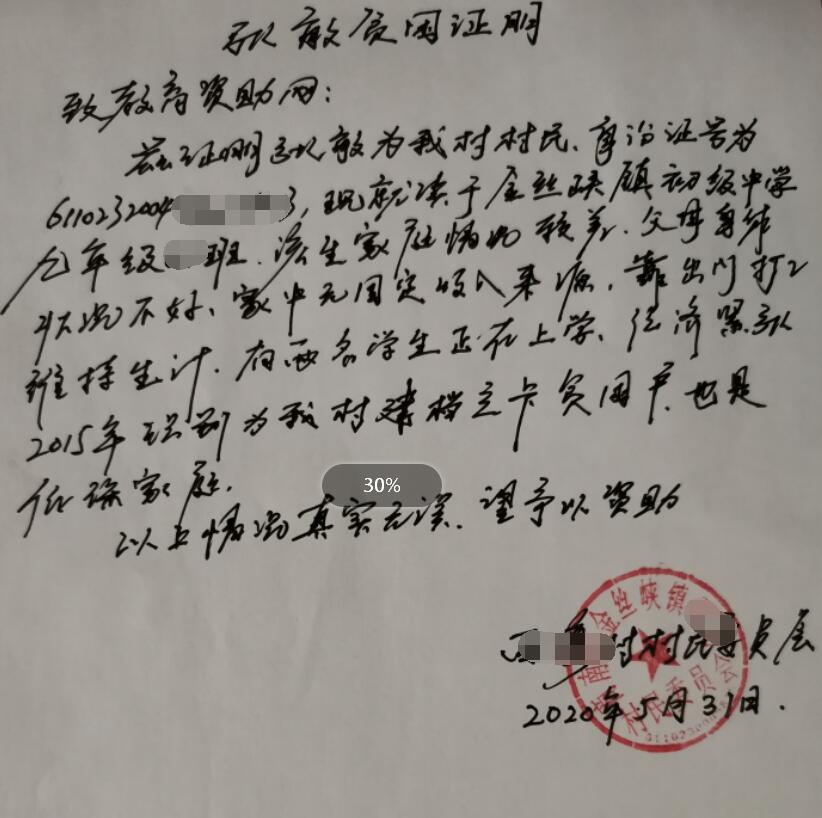 敏贫困证明
致教育资助网：
兹证明 敏为我村村民、身份证号为
6110232004 3，现就读于金丝峡镇初级中学
九年级 班．该生家庭情况较差．父母身体
状况不好、家中无固定收入来源，靠出门打工
维持生计．有两名学生正在上学、经济紧
2015年识别为我村建档立卡贫困户．也是
低保家庭．
以上情况真实无误．望予以资助
30%
金丝峡镇
村村民委员会
村民委员会
2020年5月31日．